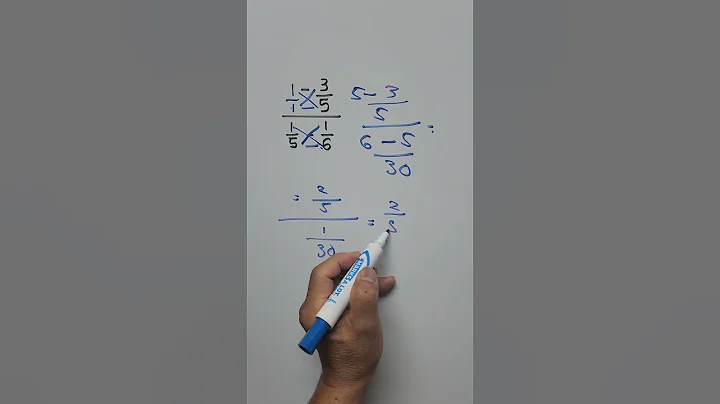 1/1 - 3/5
1/5 - 1/6
5 - 3
5
6 - 5
30
=
= 2/5
1/30
= 2/5